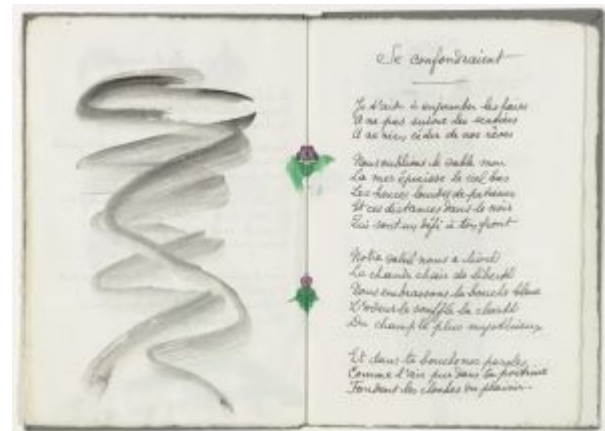 Se confondraient
Je t'aide à enjamber les
A ne pas suivre les
A ne rien céder de nos rêves
Nous oublions le sable mou
La mer épaissie le ciel bas
Les heures lourdes de
Et ces distances dans le noir
Qui sont un défi à ton front
Notre soleil nous a livré
La chaude chair de liberté
Nous embrassons la bouche bleue
L'odeur le souffle la clarté
Du champ le plus mystérieux
Et dans ta bouche nos paroles
Comme l'air pur dans ta poitrine
Fondent les cloches du plaisir.